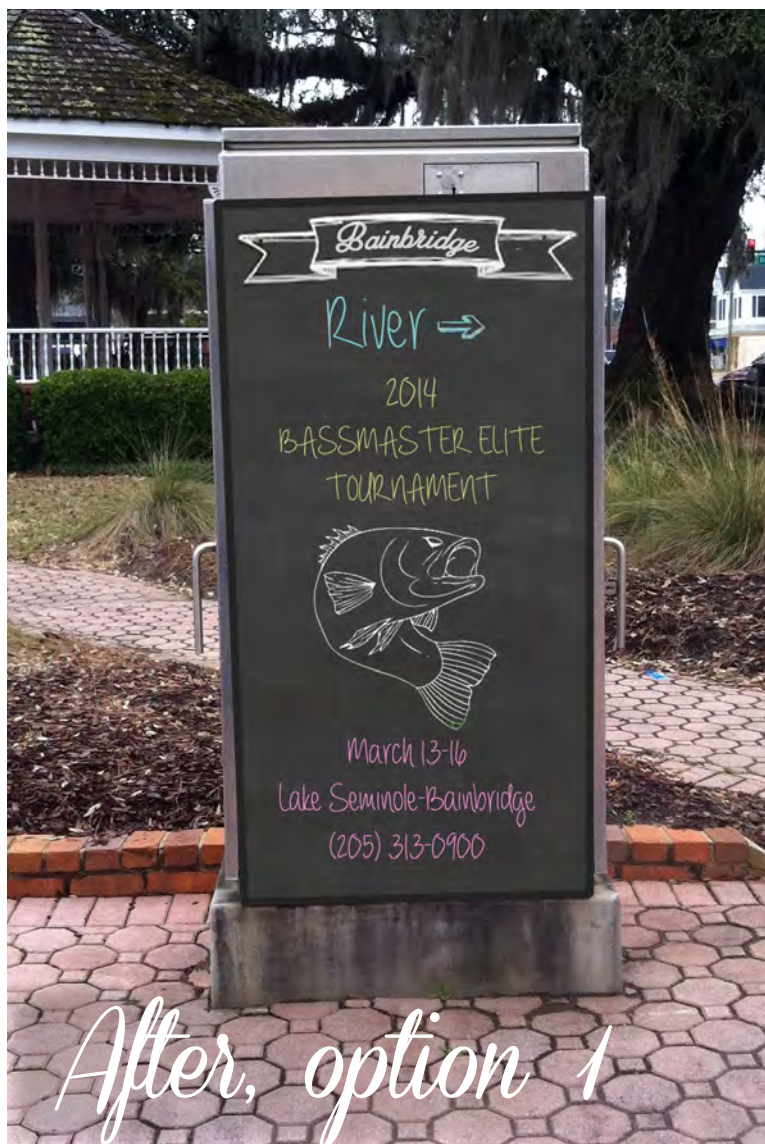 Bainbridge
River
2014
BASSMASTER ELITE
TOURNAMENT
March 13-16
Lake Seminole-Bainbridge
(205) 313-0900
After, option 1